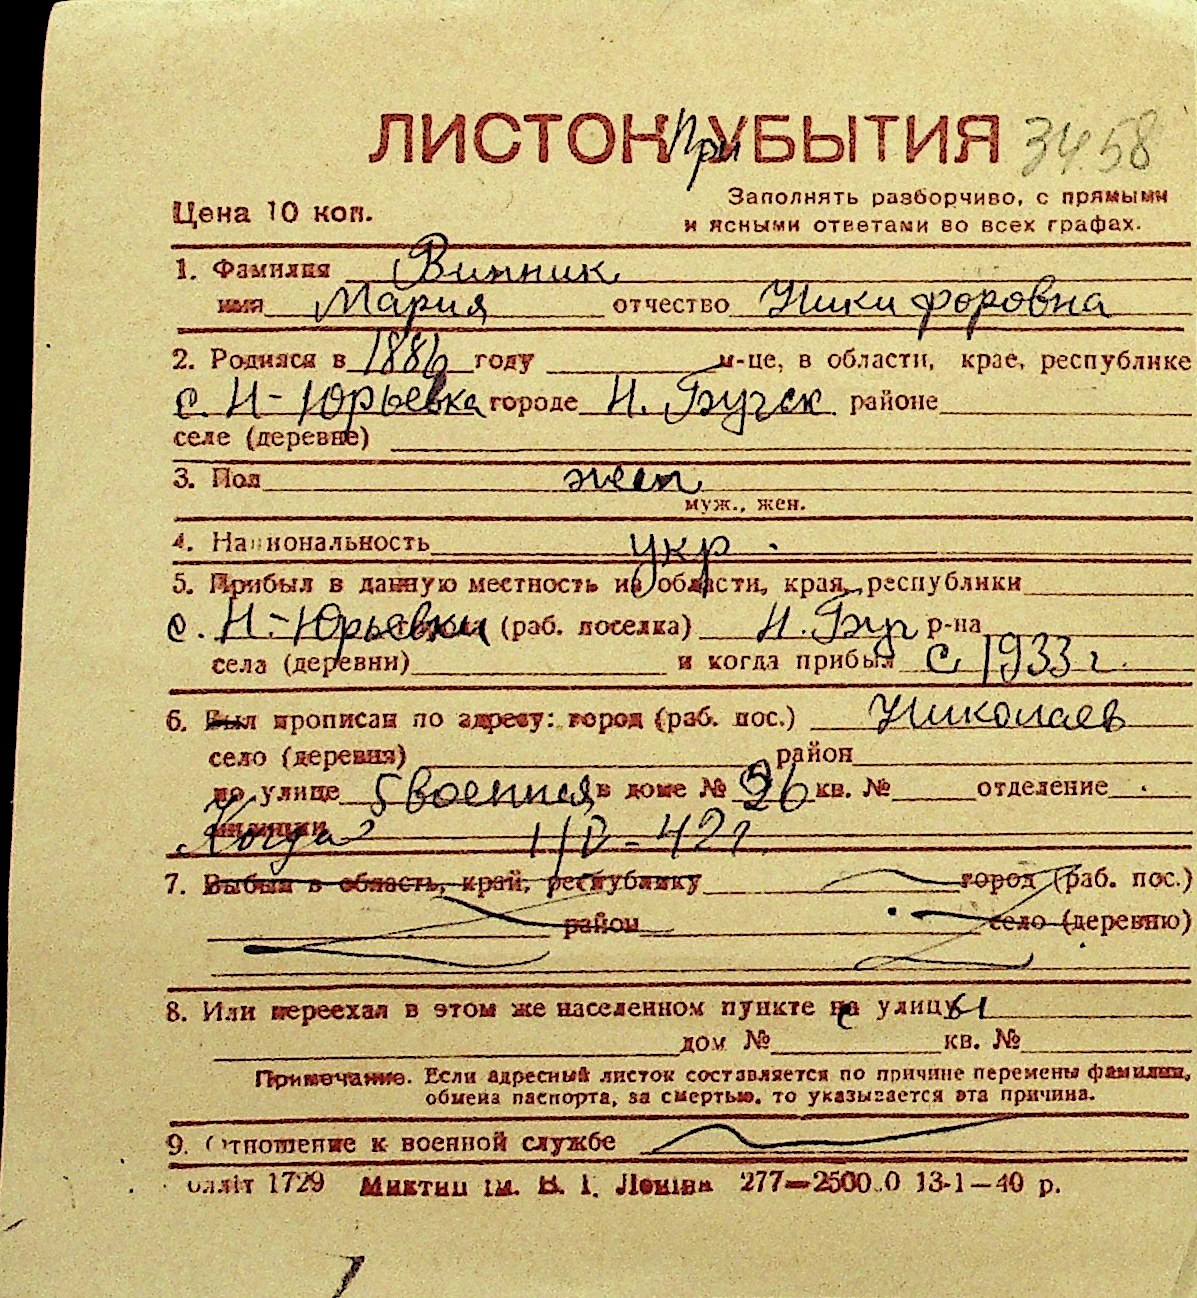 ЛИСТОК При УБЫТИЯ 3458
Заполнять разборчиво, с прямыми
Цена 10 коп.
и ясными ответами во всех графах.
1. Фамилия Винник
имя Мария отчество Никифоровна
2. Родился в 1886 году м-це, в области, крае, республике
с. Н-Юрьевка городе Н. Бугск районе
селе (деревне)
3. Пол жен
муж., жен.
4. Национальность укр.
5. Прибыл в данную местность из области, края, республики
с. Н-Юрьевки города (раб. поселка) Н. Буг р-на
села (деревни) и когда прибыл с 1933 г.
6. Был прописан по адресу: город (раб. пос.) Николаев
село (деревня) район
по улице 5 военная в доме № 26 кв. № отделение
милиции Когда? 1/V-42 г.
7. Выбыл в область, край, республику город (раб. пос.)
район село (деревню)
8. Или переехал в этом же населенном пункте с улицы
дом № кв. №
Примечание. Если адресный листок составляется по причине перемены фамилии,
обмена паспорта, за смертью, то указывается эта причина.
9. Отношение к военной службе
блліт 1729 Миктип ім. В. І. Леніна 277—25000 13-1—40 р.